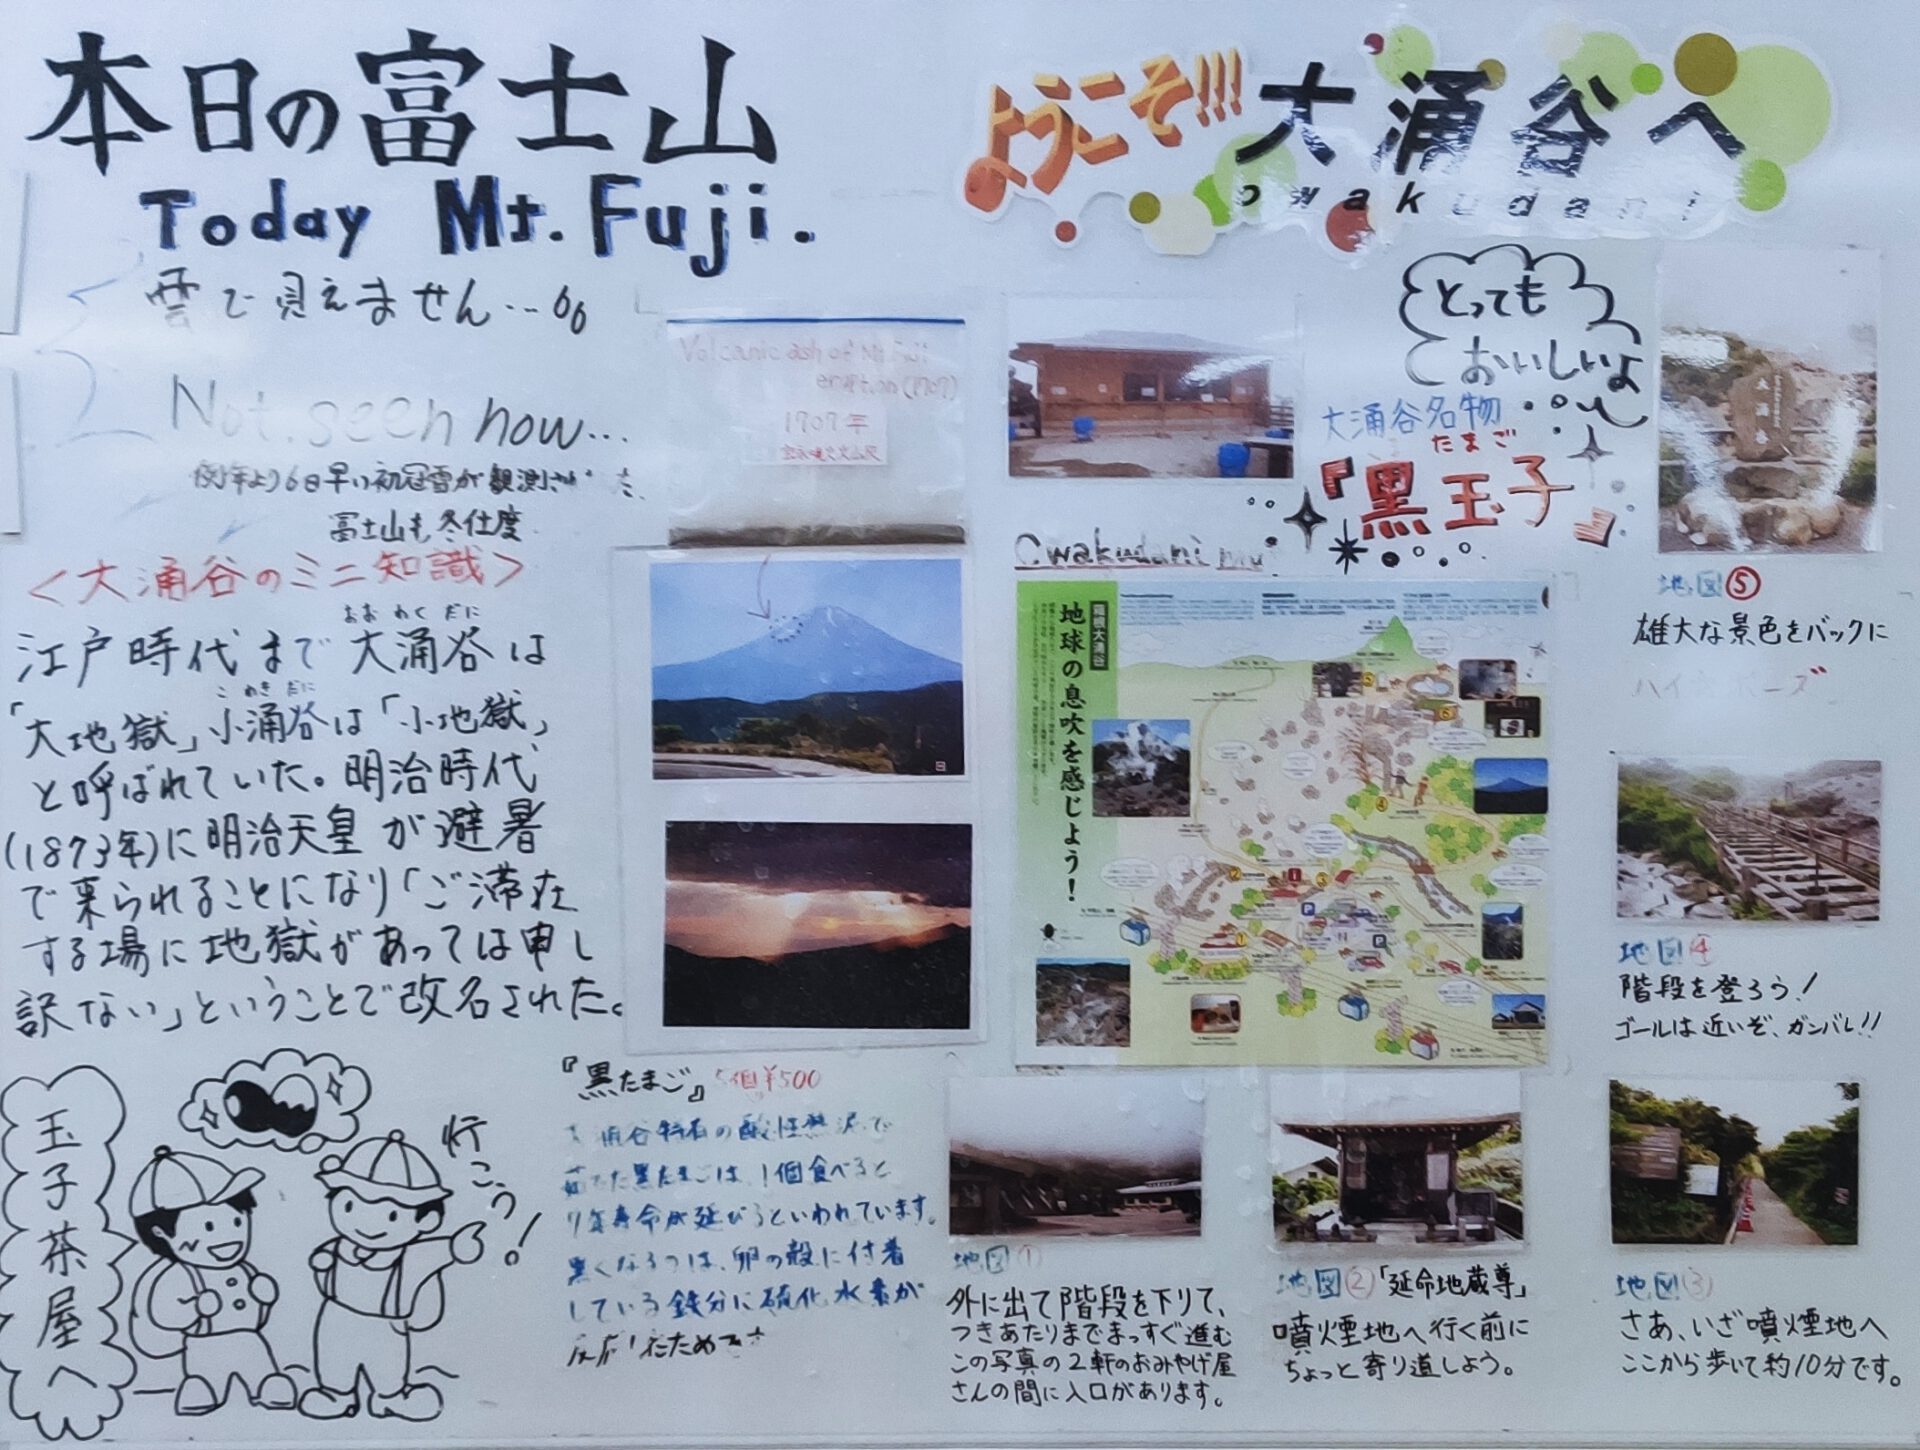 本日の富士山
Today Mt. Fuji.
雲で見えません…
Not seen now…
例年より6日早い初冠雪が観測さ
富士山も冬仕度
<大涌谷のミニ知識>
おおわくだに
江戸時代まで大涌谷は
こわきだに
「大地獄」小涌谷は「小地獄」
と呼ばれていた。明治時代
(1873年)に明治天皇が避暑
で来られることになり「ご滞在
する場に地獄があっては申し
訳ない」ということで改名された。
玉子茶屋へ
行こう!
Volcanic ash of Mt Fuji
eruption (1707)
1707年
『黒たまご』5個¥500
大涌谷特有の酸性熱泥で
茹でた黒たまごは、1個食べると
7年寿命が延びるといわれています。
黒くなるのは、卵の殻に付着
している鉄分に硫化水素が
反応したためです
ようこそ!!!大涌谷へ
owakudani
とっても
おいしいよ
大涌谷名物
たまご
『黒玉子』
Owakudani
箱根大涌谷
地球の息吹を感じよう!
大涌谷
地図⑤
雄大な景色をバックに
ハイ ポーズ
地図④
階段を登ろう!
ゴールは近いぞ、ガンバレ!!
地図①
外に出て階段を下りて、
つきあたりまでまっすぐ進む
この写真の2軒のおみやげ屋
さんの間に入口があります。
地図②「延命地蔵尊」
噴煙地へ行く前に
ちょっと寄り道しよう。
地図③
さあ、いざ噴煙地へ
ここから歩いて約10分です。